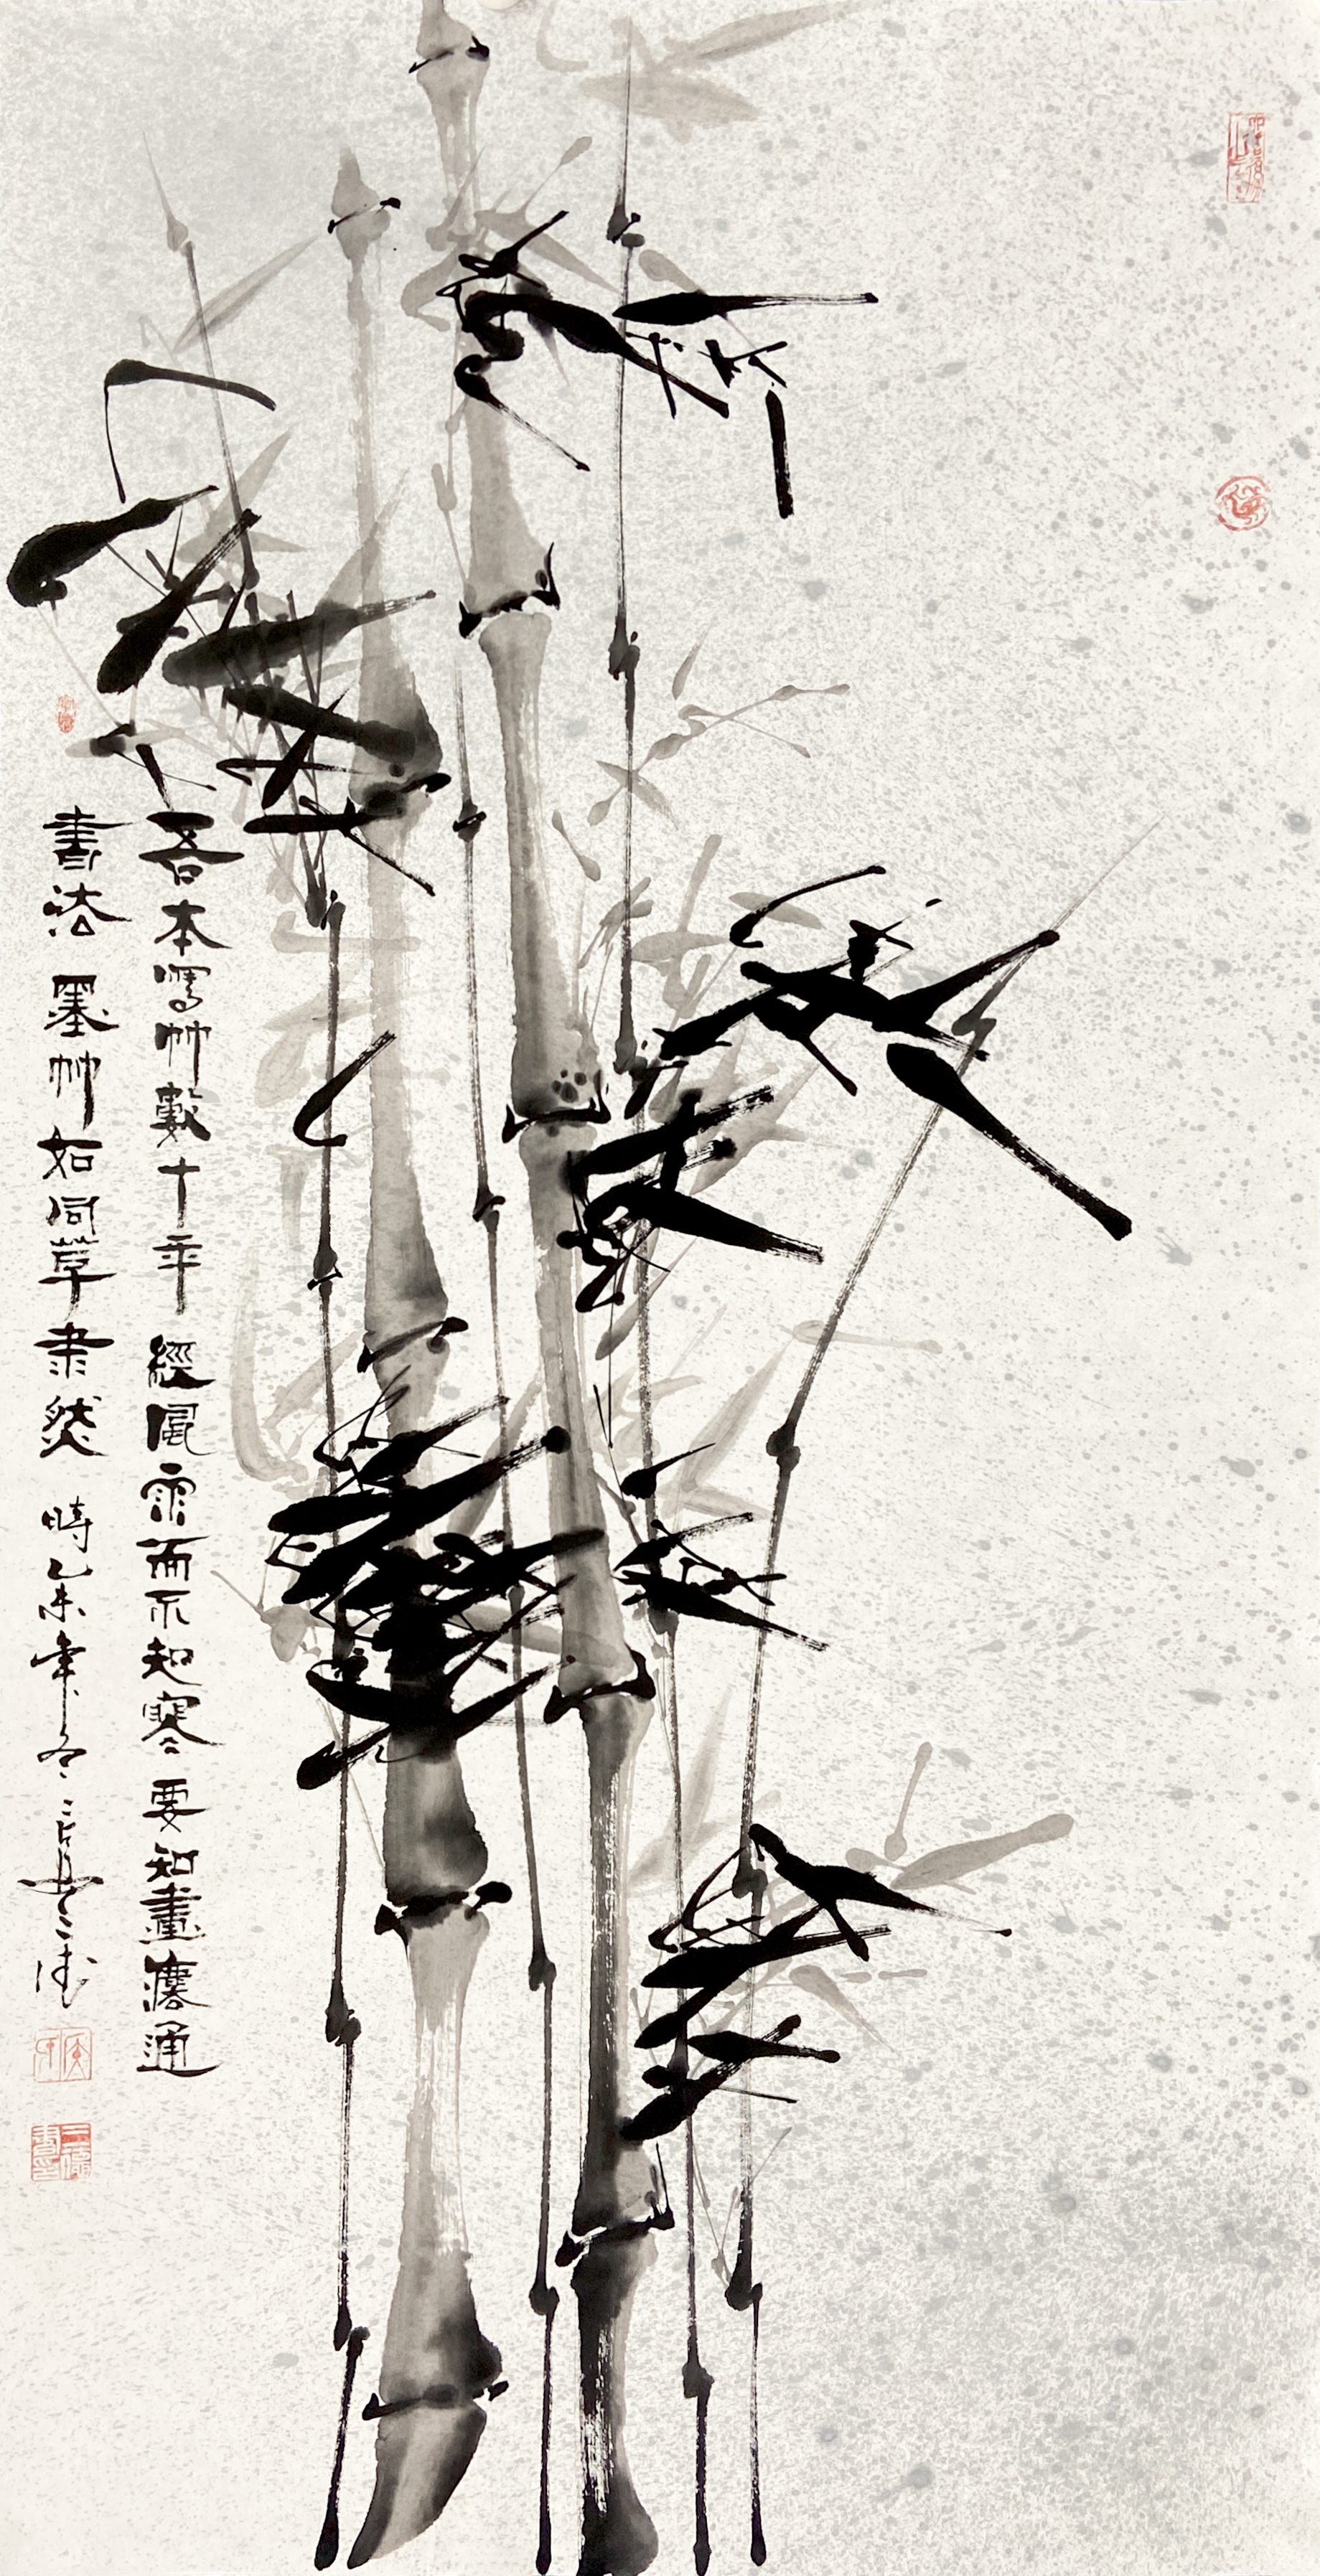 吾本寫竹數十年經風雨而不知寒要知畫濃通
書法墨竹如同草隶然時乙未年冬